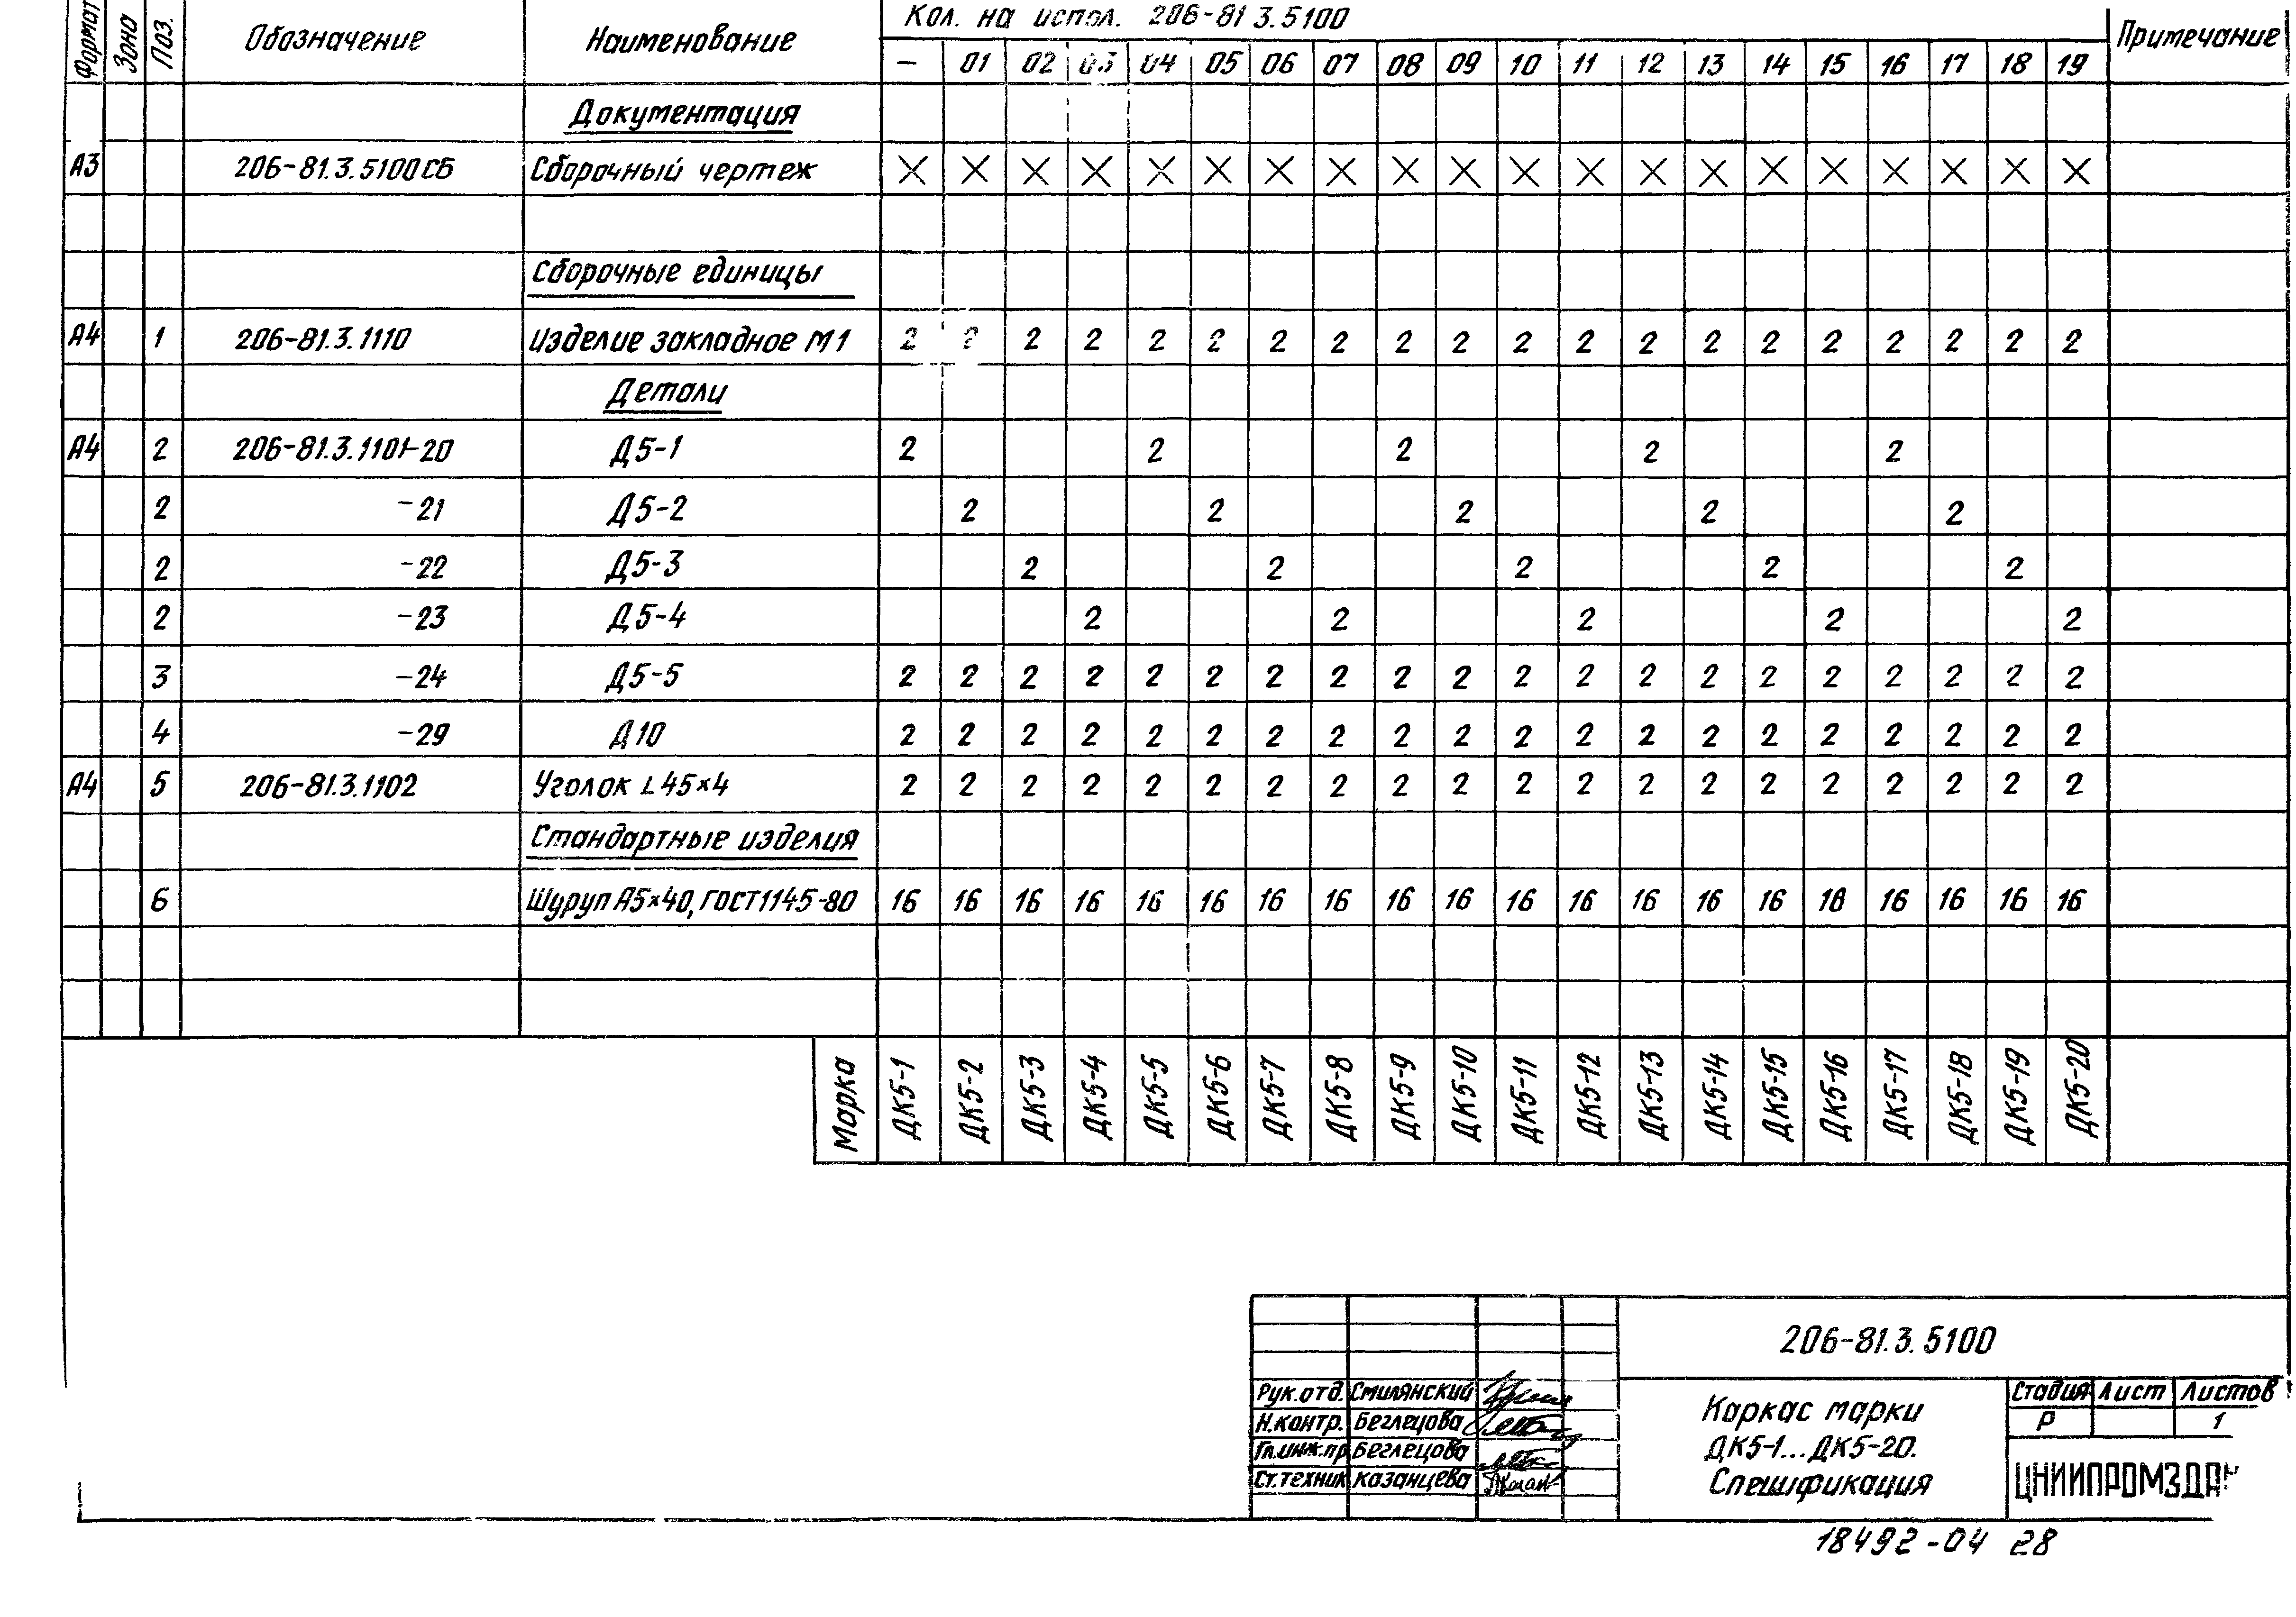 Формат Зона Поз. Обозначение Наименование Кол. на испол. 206-81 3.5100 Примечание
– 01 02 03 04 05 06 07 08 09 10 11 12 13 14 15 16 17 18 19
Документация
А3 206-81.3.5100СБ Сборочный чертеж X X X X X X X X X X X X X X X X X X X X
Сборочные единицы
А4 1 206-81.3.1110 Изделие закладное М1 2 2 2 2 2 2 2 2 2 2 2 2 2 2 2 2 2 2 2 2
Детали
А4 2 206-81.3.1101-20 Д5-1 2 2 2 2 2
2 -21 Д5-2 2 2 2 2 2
2 -22 Д5-3 2 2 2 2 2
2 -23 Д5-4 2 2 2 2 2
3 -24 Д5-5 2 2 2 2 2 2 2 2 2 2 2 2 2 2 2 2 2 2 2 2
4 -29 Д10 2 2 2 2 2 2 2 2 2 2 2 2 2 2 2 2 2 2 2 2
А4 5 206-81.3.1102 Уголок L45×4 2 2 2 2 2 2 2 2 2 2 2 2 2 2 2 2 2 2 2 2
Стандартные изделия
6 Шуруп А5×40, ГОСТ1145-80 16 16 16 16 16 16 16 16 16 16 16 16 16 16 16 18 16 16 16 16
Марка ДК5-1 ДК5-2 ДК5-3 ДК5-4 ДК5-5 ДК5-6 ДК5-7 ДК5-8 ДК5-9 ДК5-10 ДК5-11 ДК5-12 ДК5-13 ДК5-14 ДК5-15 ДК5-16 ДК5-17 ДК5-18 ДК5-19 ДК5-20
206-81.3.5100
Рук.отд. Смилянский
Н.контр. Беглецова
Гл.инж.пр Беглецова
Ст.техник Казанцева
Каркас марки
ДК5-1...ДК5-20.
Спецификация
Стадия Лист Листов
Р 1
ЦНИИПРОМЗДАН
18492-04 28